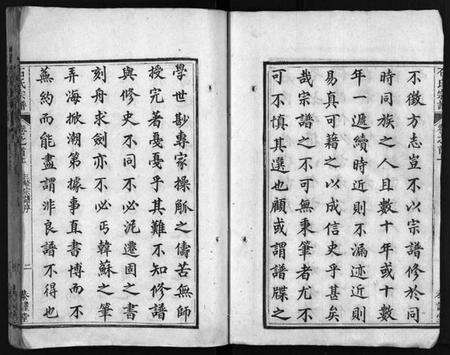 不徵方志豈不以宗譜修於同
時同族之人且數十年或十數
年一遞續時近則不漏迹近則
易真可藉之以成信史乎甚矣
哉宗譜之不可無秉筆者尤不
可不慎其選也顧或謂譜牒之
學世尟專家操觚之儔苦無師
授究著戞戞乎其難不知修譜
與修史不同不必泥遷固之書
刻舟求劍亦不必丐韓蘇之筆
弄海掀潮第據事直書博而不
蕪約而能盡謂非良譜不得也
石氏宗譜
二